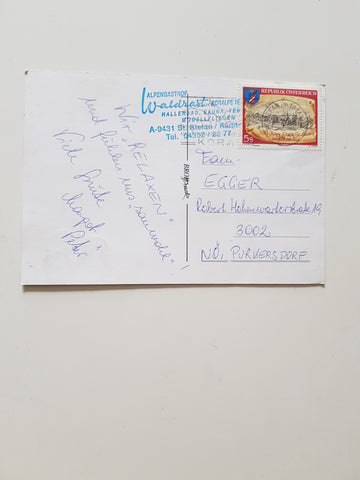 ALPENGASTHOF
Waldrast KORALPE
HALLENBAD, SAUNA,
MODELLFLIEGEN
A-9431 St. Stefan /
Tel. 04352 / 22 77
REPUBLIK ÖSTERREICH
5S
KORA
Wir "RELAXEN"
und fühlen uns "sauwohl"
Viele Grüße
Margot +
Peter
Fam.
EGGER
Robert Hohenwarterstraße 19
3002
NÖ, PURKERSDORF